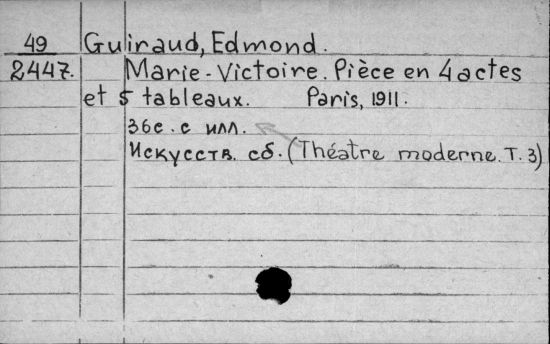 49 Guiraud, Edmond.
2447. Marie-Victoire. Pièce en 4 actes
et 5 tableaux. Paris, 1911.
36с. с илл.
Искусств. сб. (Théatre moderne. T. 3)